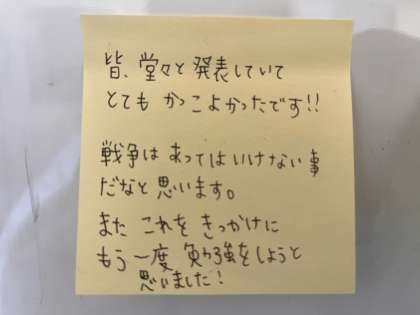 皆、堂々と発表していて
とても かっこよかったです!!
戦争は あってはいけない事
だなと思います。
また これを きっかけに
もう一度 勉強をしようと
思いました!